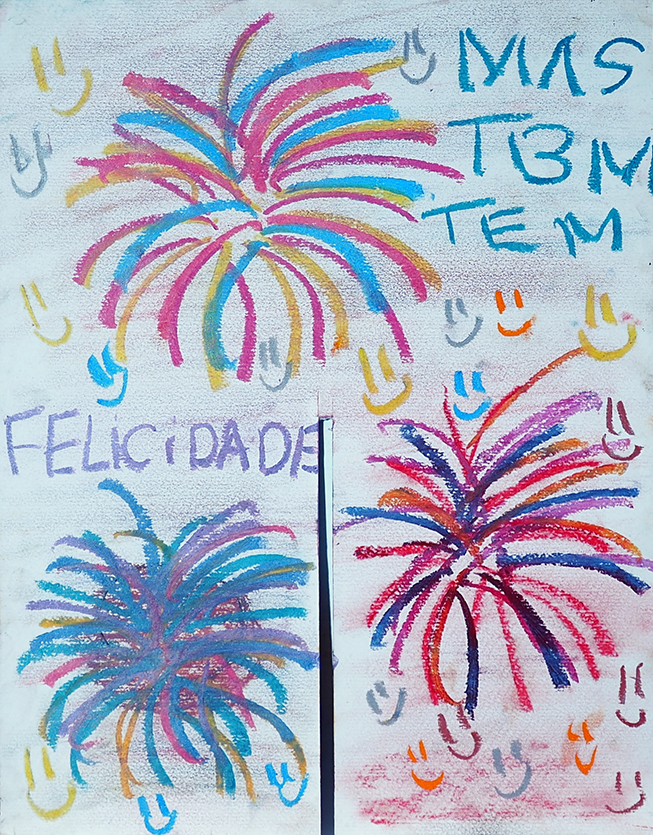 MAS
TBM
TEM
FELICIDADE